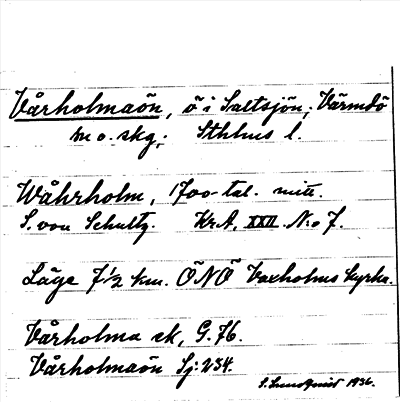 Vårholmaön, ö i Saltsjön; Värmdö
m o. skg; Sthlms l.
Wåhrholm, 1700-tal. mitt.
S. von Schultz. Kr.A, XXII. N:o 7.
Läge 7½ km. ÖNÖ Vaxholms kyrka.
Vårholma sk, G. 76.
Vårholmaön Sj: 234.
1936.